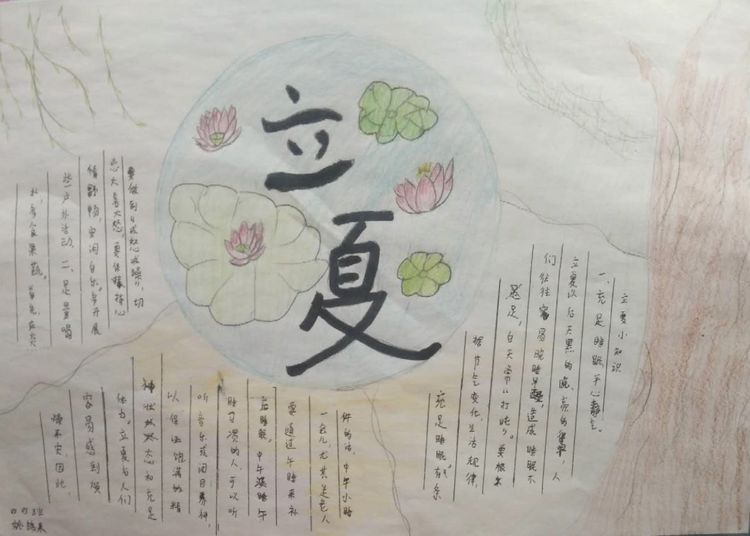 立夏
立夏小知识
一、充足睡眠,平心静气。
立夏以后天黑的晚,亮的早,人
们往往容易晚睡早醒,造成睡眠不
足,白天常常"打吨"。要根
据节气变化,生活规律,
充足睡眠。有条
件的话,中午小睡
一会儿,尤其是老人
要通过午睡来补
睡眠。中午没睡午
睡习惯的人,可以听
听音乐或闭目养神,
以保证饱满的精
神状态和充足
体力。立夏 人们
容易感到烦
燥不安,因此,
要做到"戒怒戒躁",切
忌大喜大怒,要保持心
情舒畅,安闲自乐。多开展
些户外活动。二、足量喝
水,多食果蔬。首先应多
班